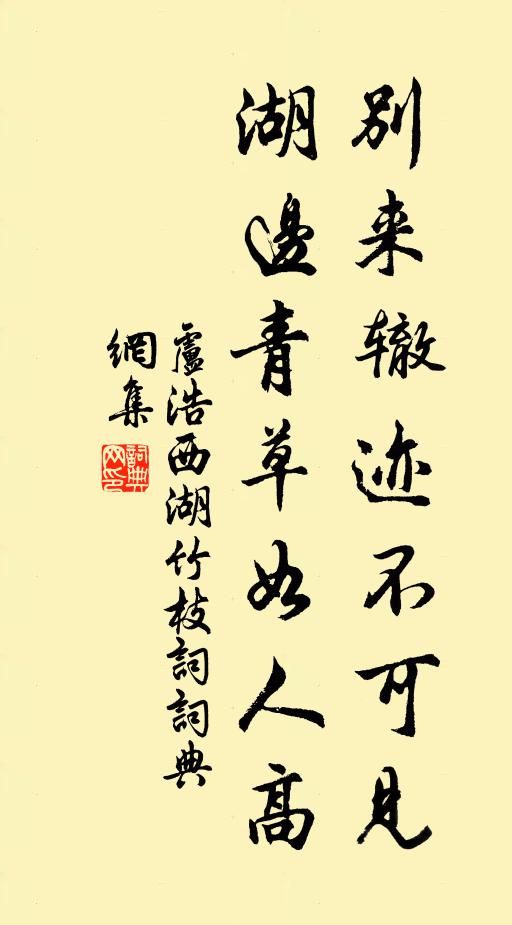 别来辙迹不可見
湖邊青草如人高
盧浩西湖竹枝詞詞典
網集
詞典
网印